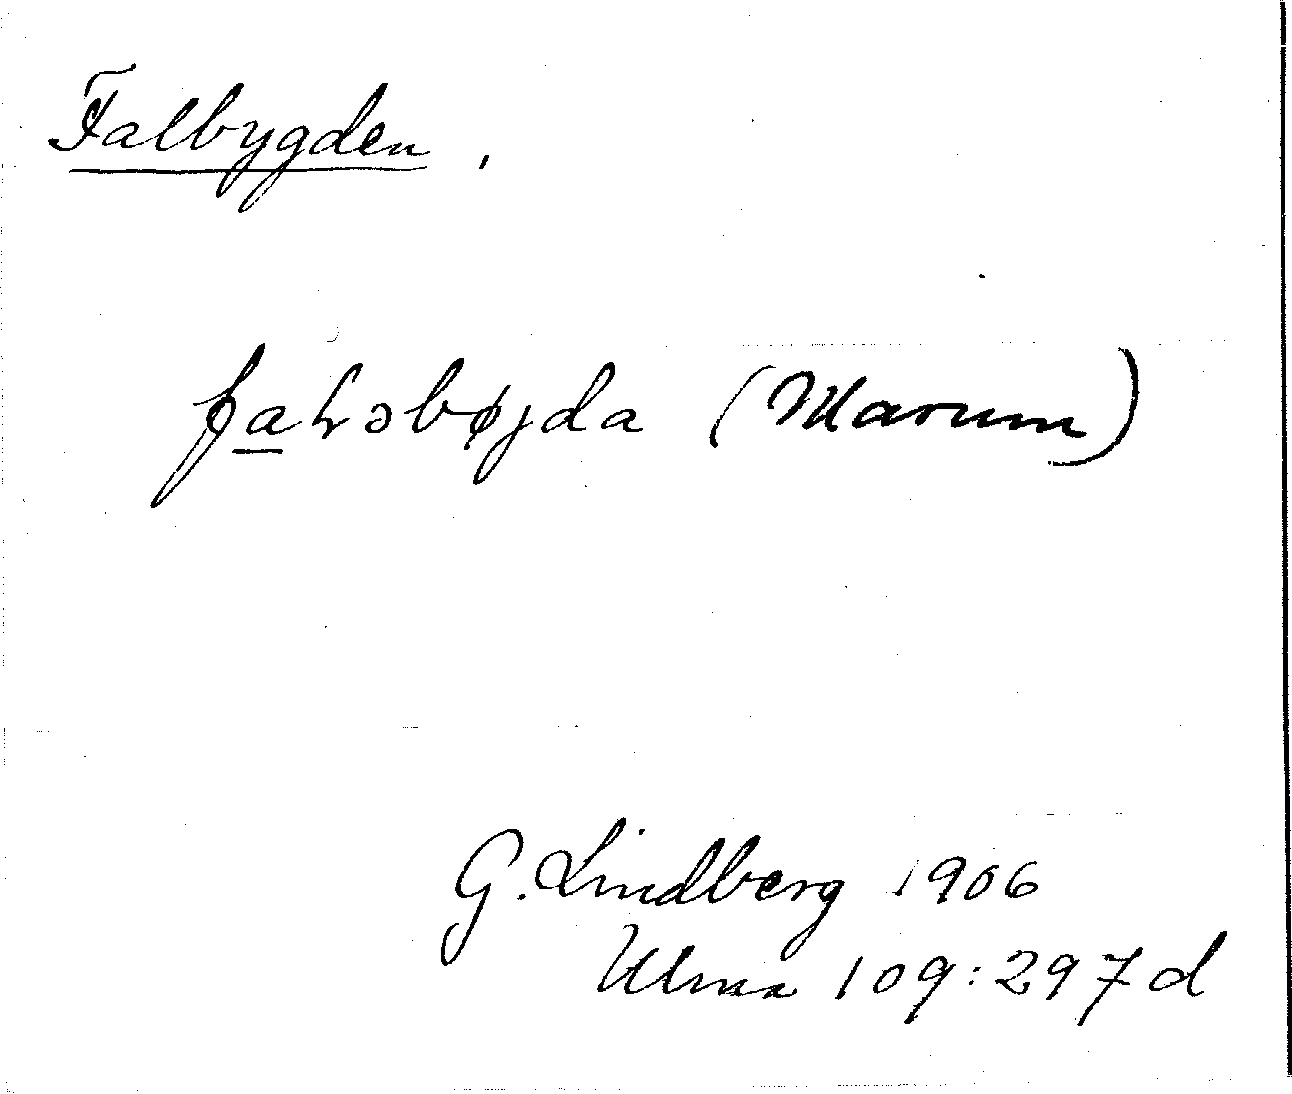 Falbygden,
faⱡɔbøjda (Marum)
G. Lindberg 1906
Ulma 109:297d